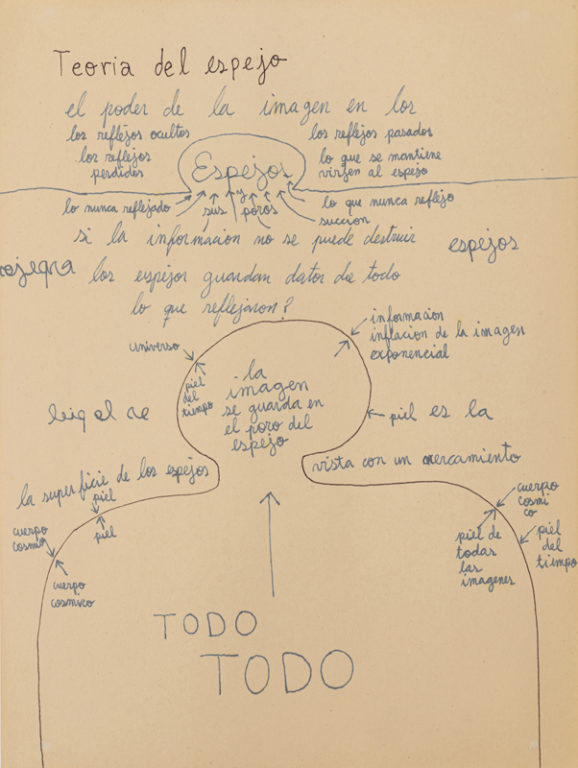 Teoria del espejo
el poder de la imagen en los
los reflejos ocultos
los reflejos
perdidos
los reflejos pasados
lo que se mantiene
virgen al espejo
Espejos
lo nunca reflejado
y
sus poros
lo que nunca reflejo
succion
si la información no se puede destruir
espejos
los espejos guardan datos de todo
lo que reflejaron?
universo
piel
del
tiempo
informacion
inflacion de la imagen
exponencial
la
imagen
se guarda en
el poro del
espejo
leiq al
piel es la
la superficie de los espejos
vista con un
piel
piel
cuerpo
cosmi
cuerpo
cosmico
cuerpo
cosmi
co
piel de
todas
las
imagenes
piel
del
tiempo
TODO
TODO